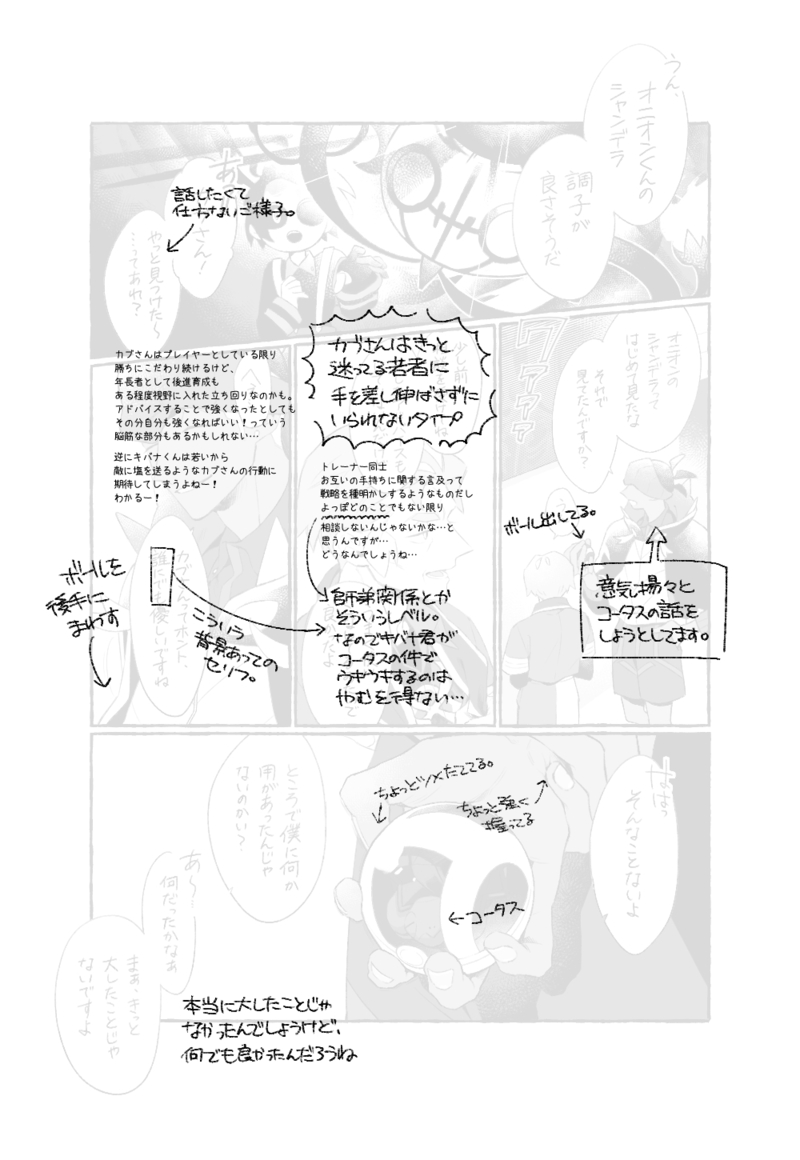 うん、
オニオンくんの
シャンデラ
調子が
良さそうだ
あ
さん!
やっと見つけた〜
…ってあれ?
話したくて
仕方ないご様子。
オニオンの
シャンデラって
はじめて見たな
それで
見てたんですか?
ワァァァ
ボール出してる。
意気揚々と
コータスの話を
しようとしてます。
カブさんはきっと
迷ってる若者に
手を差し伸ばさずに
いられないタイプ
トレーナー同士
お互いの手持ちに関する言及って
戦略を種明かしするようなものだし
よっぽどのことでもない限り
相談しないんじゃないかな…と
思うんですが…
どうなんでしょうね…
師弟関係とか
そういうレベル。
なのでキバナ君が
コータスの件で
ウキウキするのは
やむを得ない…
カブさんはプレイヤーとしている限り
勝ちにこだわり続けるけど、
年長者として後進育成も
ある程度視野に入れた立ち回りなのかも。
アドバイスすることで強くなったとしても
その分自分も強くなればいい!っていう
脳筋な部分もあるかもしれない…
逆にキバナくんは若いから
敵に塩を送るようなカブさんの行動に
期待してしまうよねー!
わかるー!
カブさんってホント、
誰にでも優しいですね
こういう
背景あっての
セリフ。
ボールを
後手に
まわす
ははっ
そんなことないよ
ちょっとツメたててる。
ちょっと強く
握ってる
←コータス
ところで僕に何か
用があったんじゃ
ないのかい?
あ〜
何だったかなぁ
まぁ、きっと
大したことじゃ
ないですよ
本当に大したことじゃ
なかったんでしょうけど、
何でも良かったんだろうね